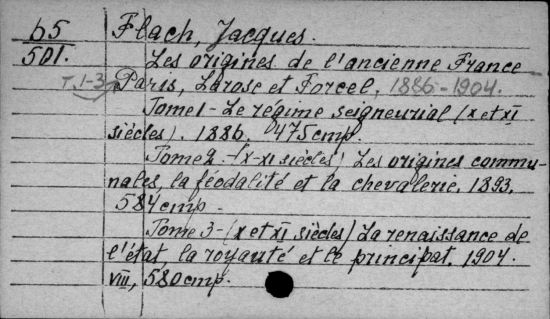 65 Flach, Jacques.
501. Les origines de l'ancienne France
T. 1-3 Paris, Larose et Forcel, 1886-1904.
Tome 1 - Le régime seigneurial (X et XI
siècles). 1886. 475 стр.
Tome 2 - (X-XI siècles) Les origines commu-
nales, la féodalité et la chevalerie. 1893.
584 стр.
Tome 3 - (X et XI siècles) La renaissance de
l'état, la royauté et le principat. 1904.
VIII, 580 стр.